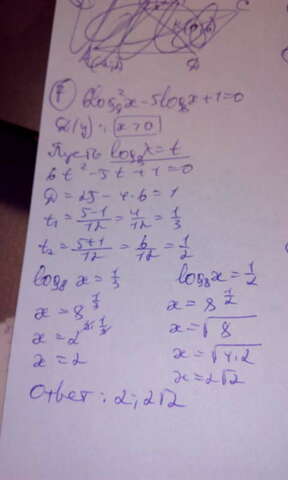 7) 6log₈²x-5log₈x+1=0
D(y): x>0
Пусть log₈x=t
6t²-5t+1=0
D=25-4·6=1
t₁=5-1/12=4/12=1/3
t₂=5+1/12=6/12=1/2
log₈x=1/3 log₈x=1/2
x=8^1/3 x=8^1/2
x=2^3·1/3 x=√8
x=2 x=√4·2
x=2√2
Ответ: 2; 2√2